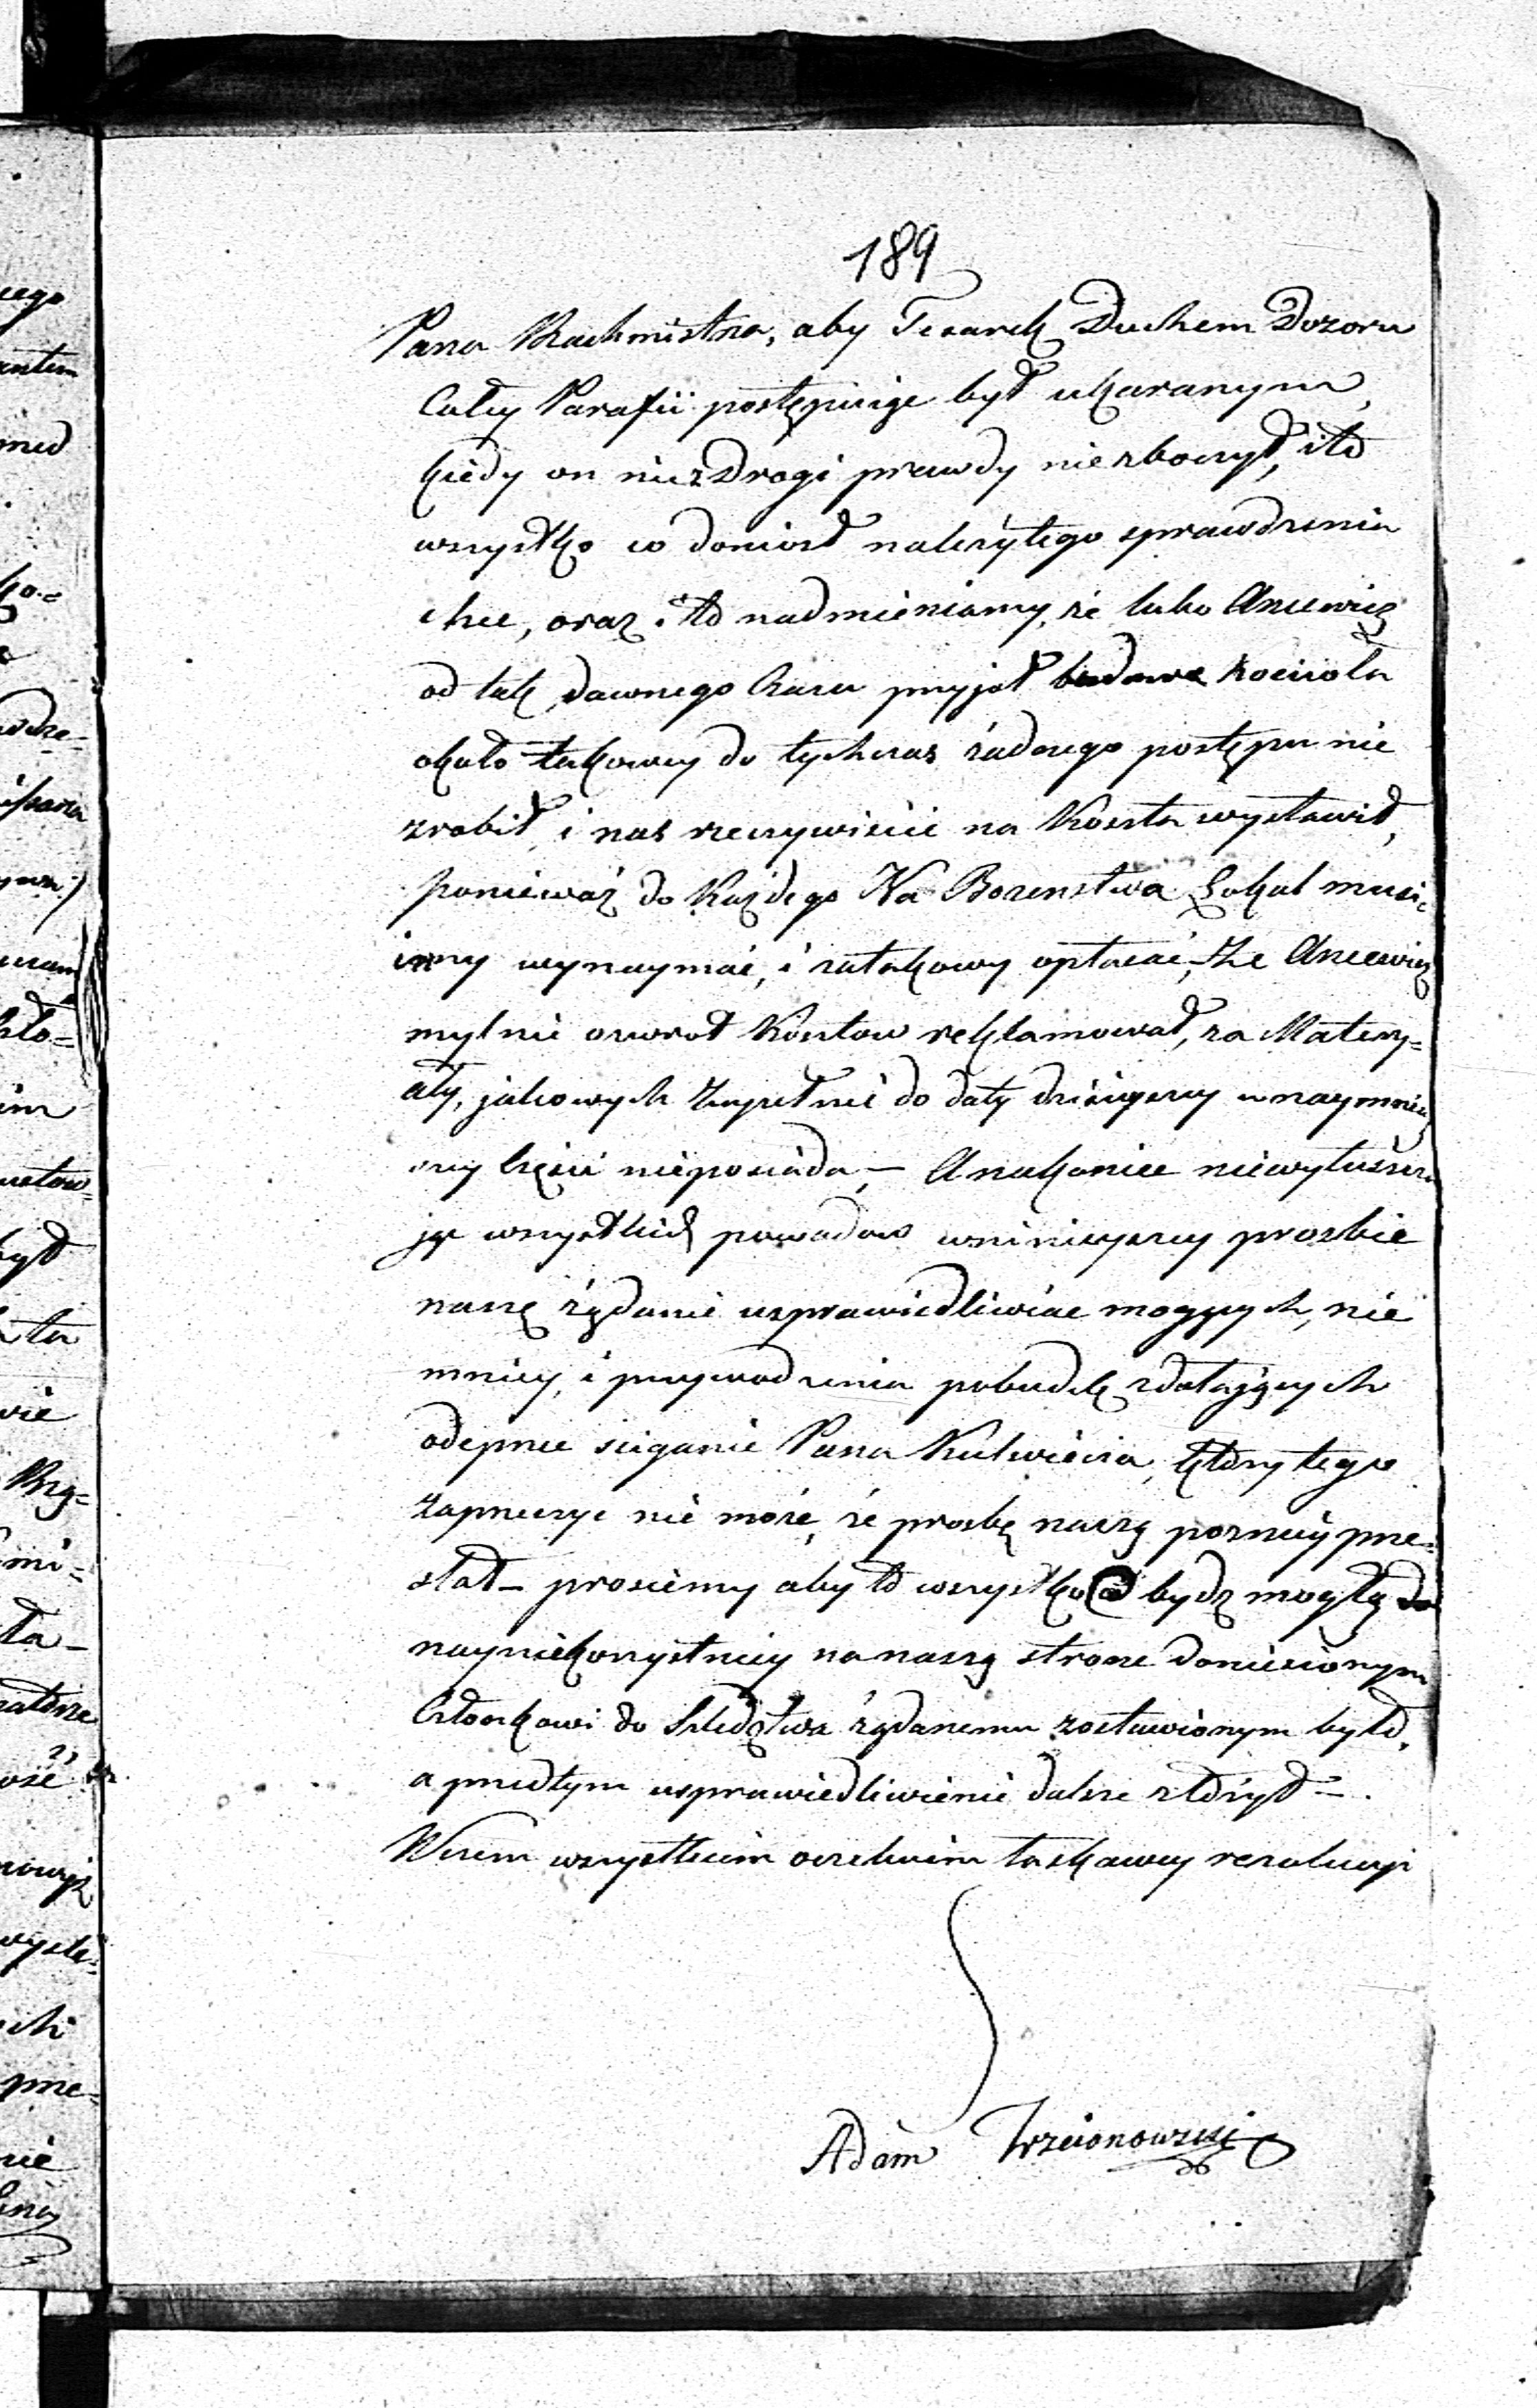 189
Pana Rachmistrza, aby Tesarek Duchem Dozoru
Całey Parafii postępuiąc był ukaranym,
kiedy on nie z Drogi prawdy nie zboczył, i to
wszystko co doniosł należytego sprawdzenia
chce, oraz i to nadmieniamy, że lubo Ancewicz
od tak dawnego Czasu przyjoł budowe Kocioła
około takowey do tychczas żadnego postępu nie
zrobił, i nas rzeczywiście na Koszta wystawił,
ponieważ do Każdego Na Bozenstwa Lokal musi=
imy wynaymać, i zatakowy opłacać, Że Ancewicz
mylnie o zwrot Kosztow reklamował, za Matery=
ały, jakowych Zupełnie do daty dzisieyszey w naymniey
szey Części nieposiada, — A nakoniec niewyłuszcza
jąc wszystkich powodow w ninieyszey prozbie
naszę żądanie usprawiedliwiac mogących, nie
mniey, i przywodzenia pobudek zdołających
odeprzec sciganie Pana Kulwiecia, który tego
Zaprzeczyc nie może, że prozbę naszą pozniey prze=
słał — prosiemy aby to wszystko co bydz mogło
nayniekorzystniey na naszą strone doniesionym
Członkowi do Sledztwa żądanemu zostawionym było,
a przed tym usprawiedliwienie dalsze złożył —.
W czem wszystkiem oczekuiem łaskawey rezolucyi
Adam Trzcionowzski